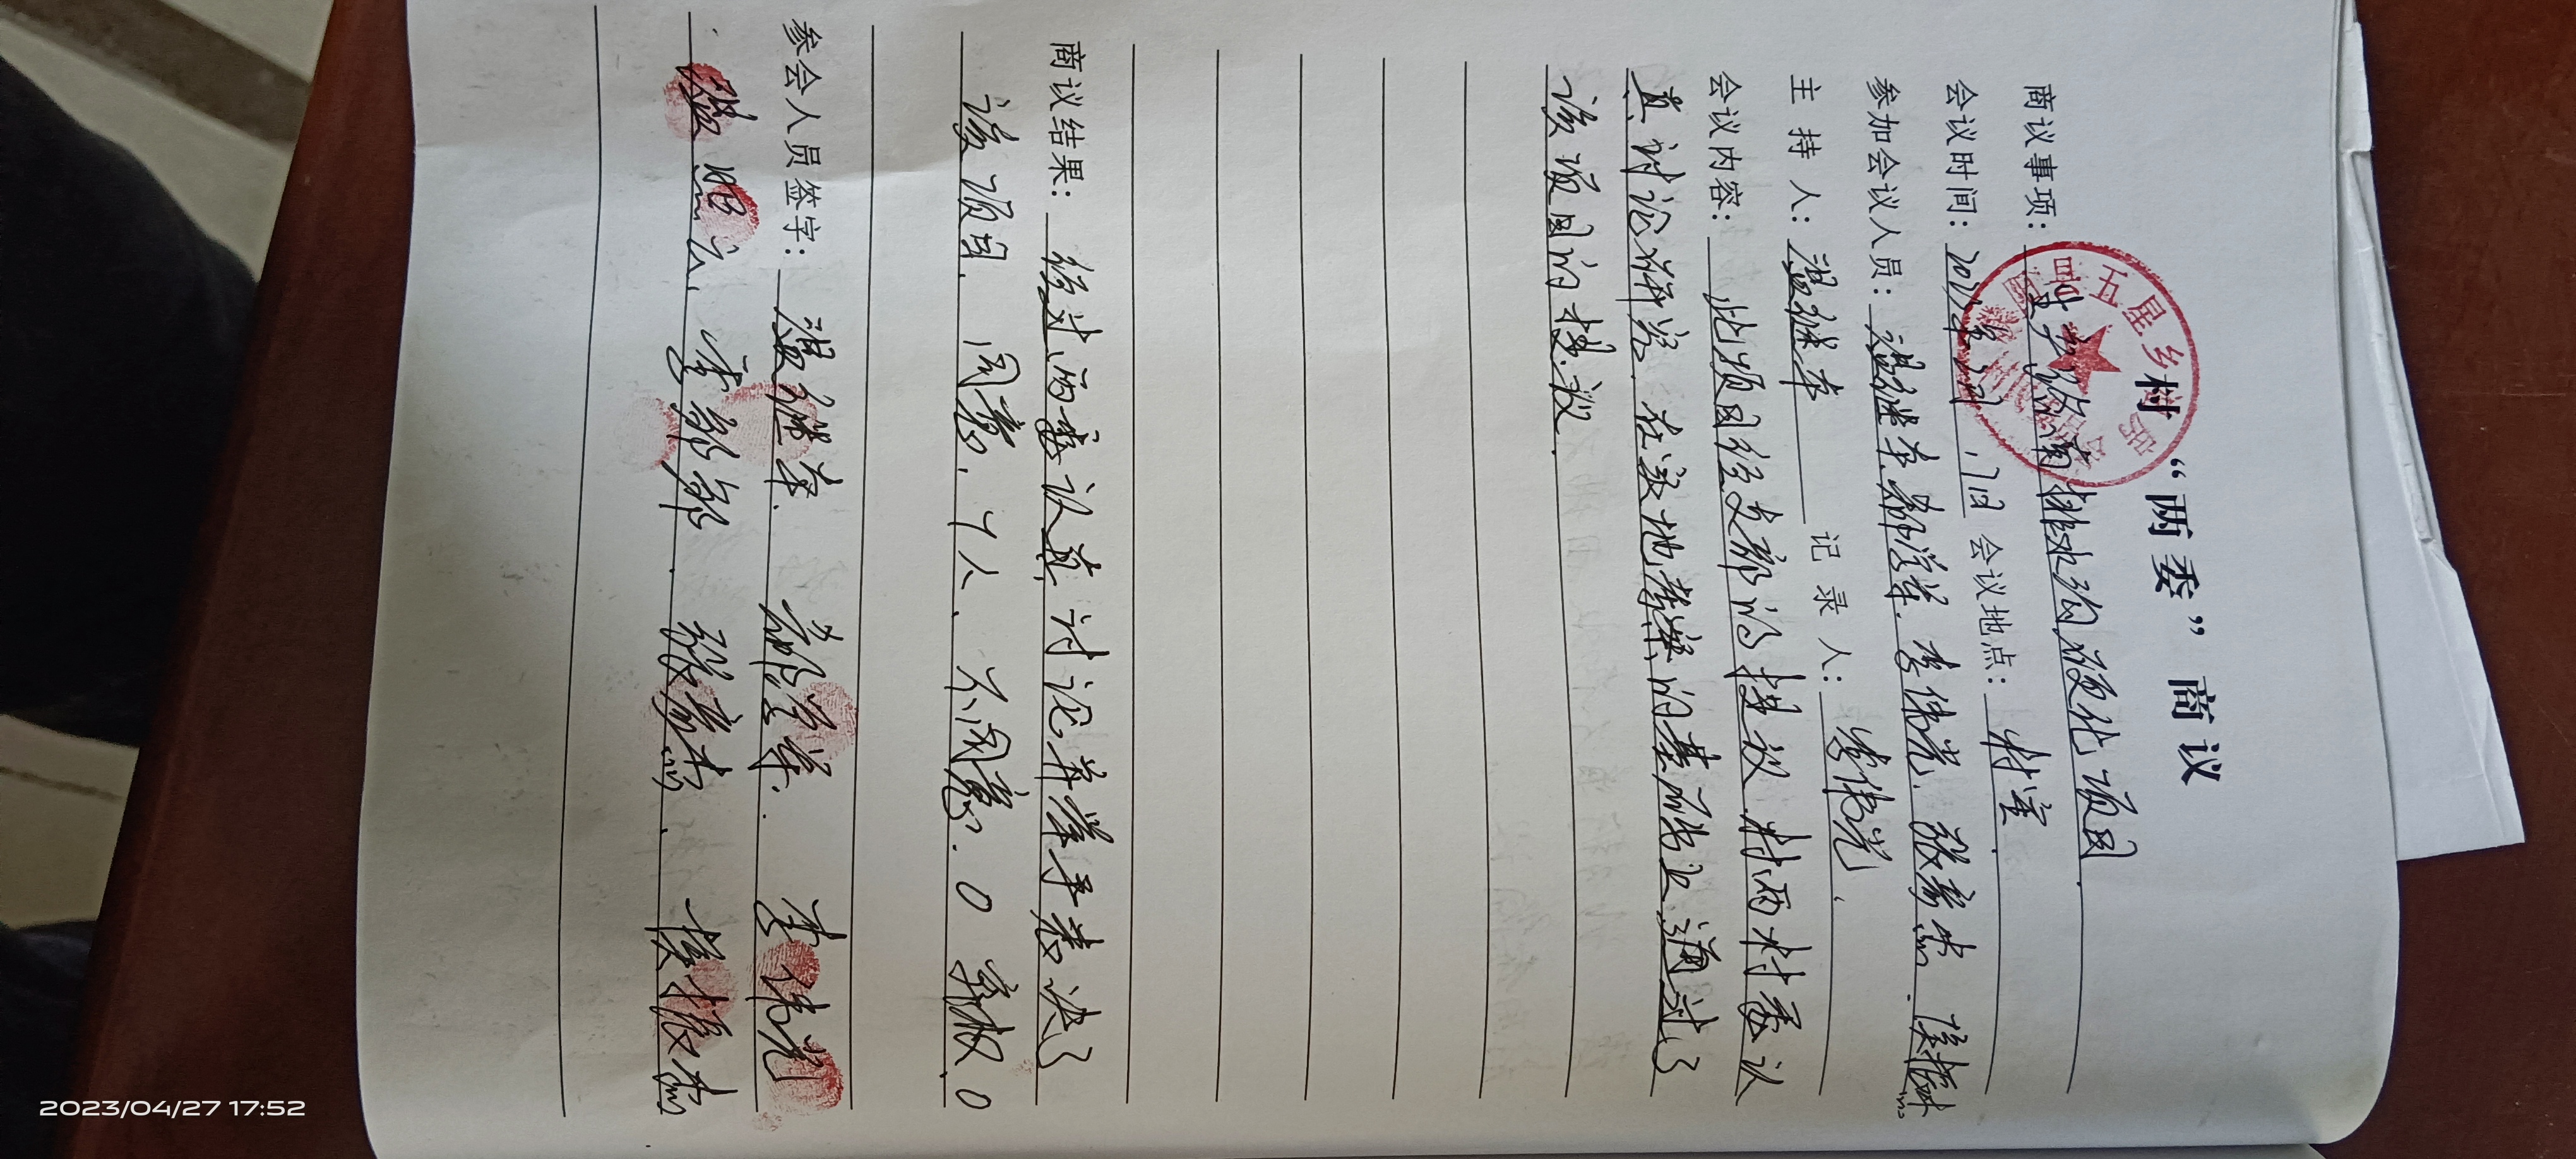 村“两委”商议
商议事项：生产路南排水沟硬化项目.
会议时间：2023年2月17日 会议地点：村室.
参加会议人员：温继本.郝学军.李伟光.张彦杰.侯振杰
主持人：温继本 记录人：李伟光.
会议内容：此项目经支部的提议.村两村委认
真讨论研究.在实地考察的基础上通过了
该项目的提议.
商议结果：经过两委认真讨论并举手表决了
该项目.同意.7人.不同意.0 弃权.0
参会人员签字：温继本.郝学军.李伟光
温照云.张彦杰.侯振杰
五星乡
2023/04/27 17:52